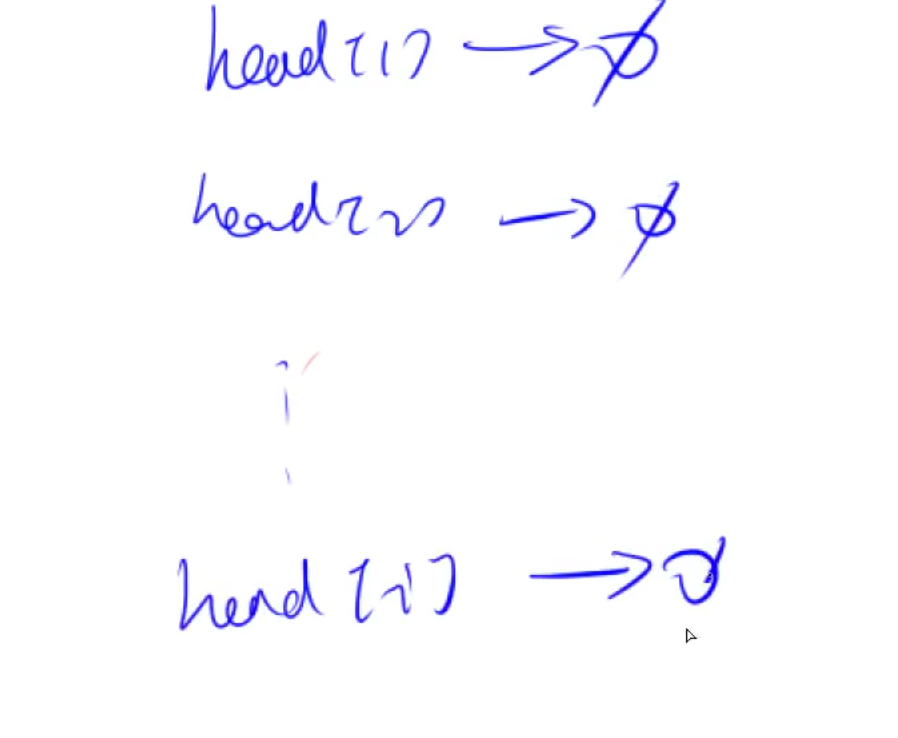 head[1] → ∅
head[2] → ∅
head[i] → ∅